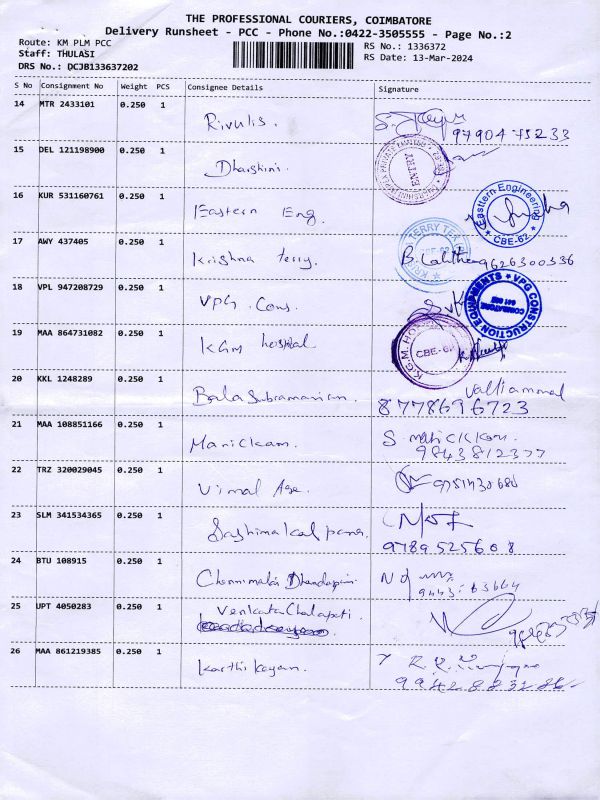 THE PROFESSIONAL COURIERS, COIMBATORE
Delivery Runsheet - PCC - Phone No.:0422-3505555 - Page No.:2
Route: KM PLM PCC
RS No.: 1336372
Staff: THULASI
RS Date: 13-Mar-2024
DRS No.: DCJB133637202
S No Consignment No Weight PCS Consignee Details Signature
14 MTR 2433101 0.250 1 Rivulis.
97904 75233
15 DEL 121198900 0.250 1 Dharshini.
ENTRY
16 KUR 531160761 0.250 1 Eastern Eng.
Eastern Engineering
CBE-62
17 AWY 437405 0.250 1 Krishna terry. B. Lalitha 9626300336
18 VPL 947208729 0.250 1 VPG. Cons.
VPG CONSTRUCTION EQUIPMENTS
COIMBATORE
641 062
19 MAA 864731082 0.250 1 KGm hospital
K.G.M. HOSPITAL
CBE-62
20 KKL 1248289 0.250 1 Bala Subramanian. Valliammal
8778696723
21 MAA 108851166 0.250 1 Manickam.
9843812377
22 TRZ 320029045 0.250 1 Vimal Age.
23 SLM 341534365 0.250 1
9789525608
24 BTU 108915 0.250 1
25 UPT 4050283 0.250 1 Venkata Chalapati.
26 MAA 861219385 0.250 1 Karthikayan.